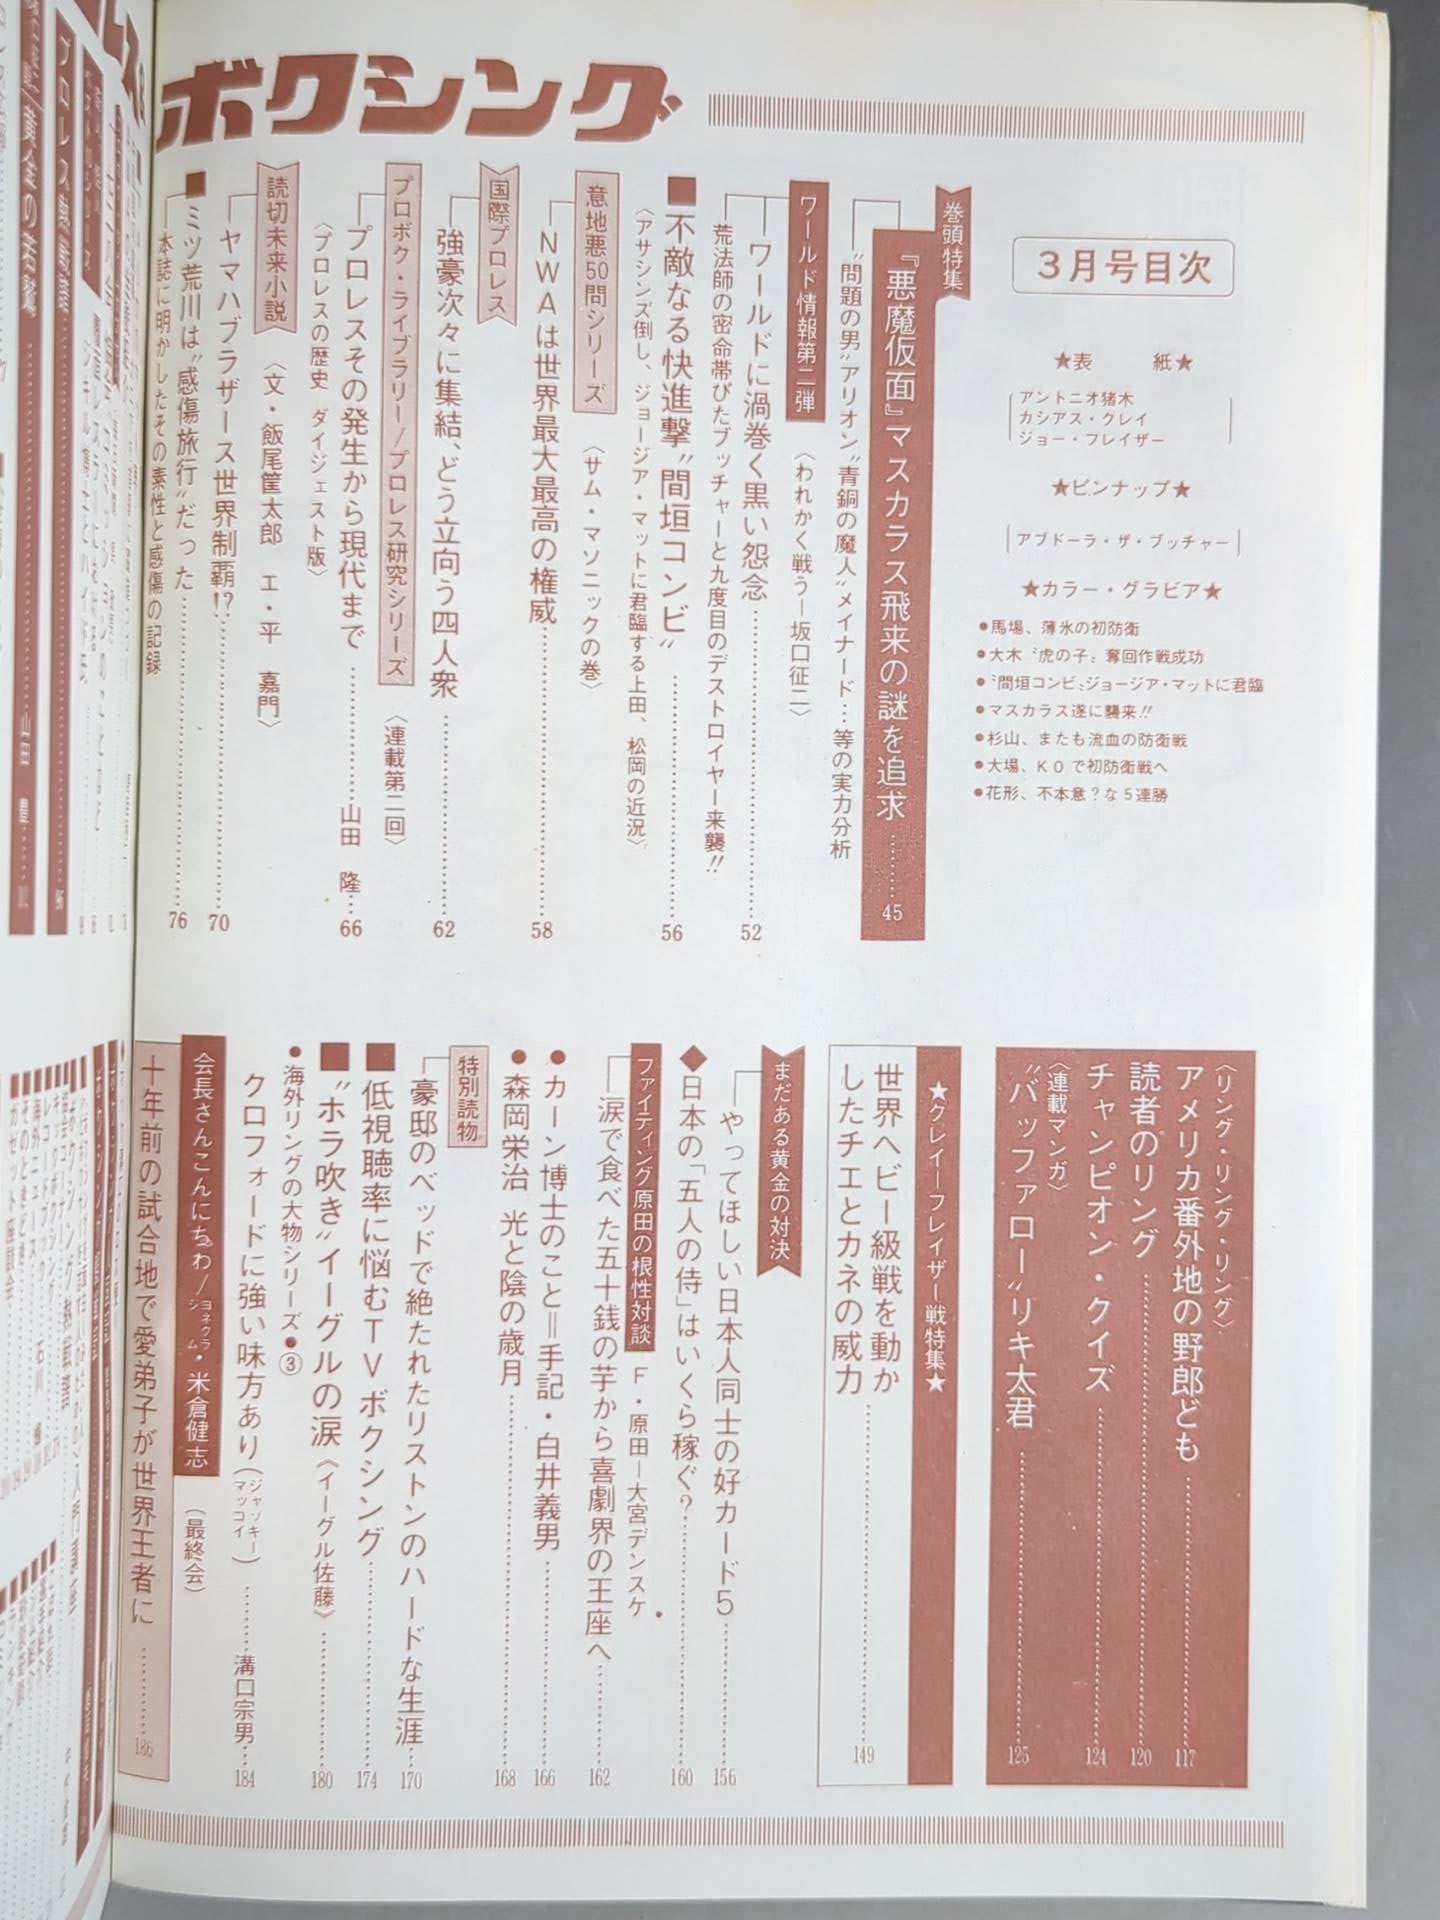 ボクシング
3月号目次
★表　紙★
アントニオ猪木
カシアス・クレイ
ジョー・フレイザー
★ピンナップ★
アブドーラ・ザ・ブッチャー
★カラー・グラビア★
●馬場、薄氷の初防衛
●大木〝虎の子〟奪回作戦成功
●〝間垣コンビ〟ジョージア・マットに君臨
●マスカラス遂に襲来!!
●杉山、またも流血の防衛戦
●大場、KOで初防衛戦へ
●花形、不本意?な5連勝
巻頭特集
『悪魔仮面』マスカラス飛来の謎を追求………45
〝問題の男〟アリオン〝青銅の魔人〟メイナード…等の実力分析
ワールド情報第二弾
〈われかく戦う―坂口征二〉
ワールドに渦巻く黒い怨念………52
荒法師の密命帯びたブッチャーと九度目のデストロイヤー来襲!!
■不敵なる快進撃〝間垣コンビ〟………56
〈アサシンズ倒し、ジョージア・マットに君臨する上田、松岡の近況〉
意地悪50問シリーズ
〈サム・マソニックの巻〉
NWAは世界最大最高の権威………58
国際プロレス
強豪次々に集結、どう立向う四人衆………62
プロボク・ライブラリー/プロレス研究シリーズ
〈連載第二回〉
プロレスその発生から現代まで………山田　隆…66
〈プロレスの歴史　ダイジェスト版〉
読切未来小説
〈文・飯尾筐太郎　エ・平　嘉門〉
ヤマハブラザース世界制覇!?………70
■ミツ荒川は〝感傷旅行〟だった………76
本誌に明かしたその素性と感傷の記録
〈リング・リング・リング〉
アメリカ番外地の野郎ども………117
読者のリング………120
チャンピオン・クイズ………124
〈連載マンガ〉
〝バッファロー〟リキ太君………125
★クレイーフレイザー戦特集★
世界ヘビー級戦を動か
したチエとカネの威力………149
まだある黄金の対決
やってほしい日本人同士の好カード5………156
◆日本の「五人の侍」はいくら稼ぐ?………160
ファイティング原田の根性対談
F・原田―大宮デンスケ
涙で食べた五十銭の芋から喜劇界の王座へ………162
●カーン博士のこと＝手記・白井義男………166
●森岡栄治　光と陰の歳月………168
特別読物
豪邸のベッドで絶たれたリストンのハードな生涯………170
■低視聴率に悩むTVボクシング………174
■〝ホラ吹き〟イーグルの涙〈イーグル佐藤〉………180
●海外リングの大物シリーズ●③
クロフォードに強い味方あり(ジャッキー・マッコイ)………溝口宗男…184
会長さんこんにちわ/ヨネクラジム・米倉健志
(最終会)
十年前の試合地で愛弟子が世界王者に………186